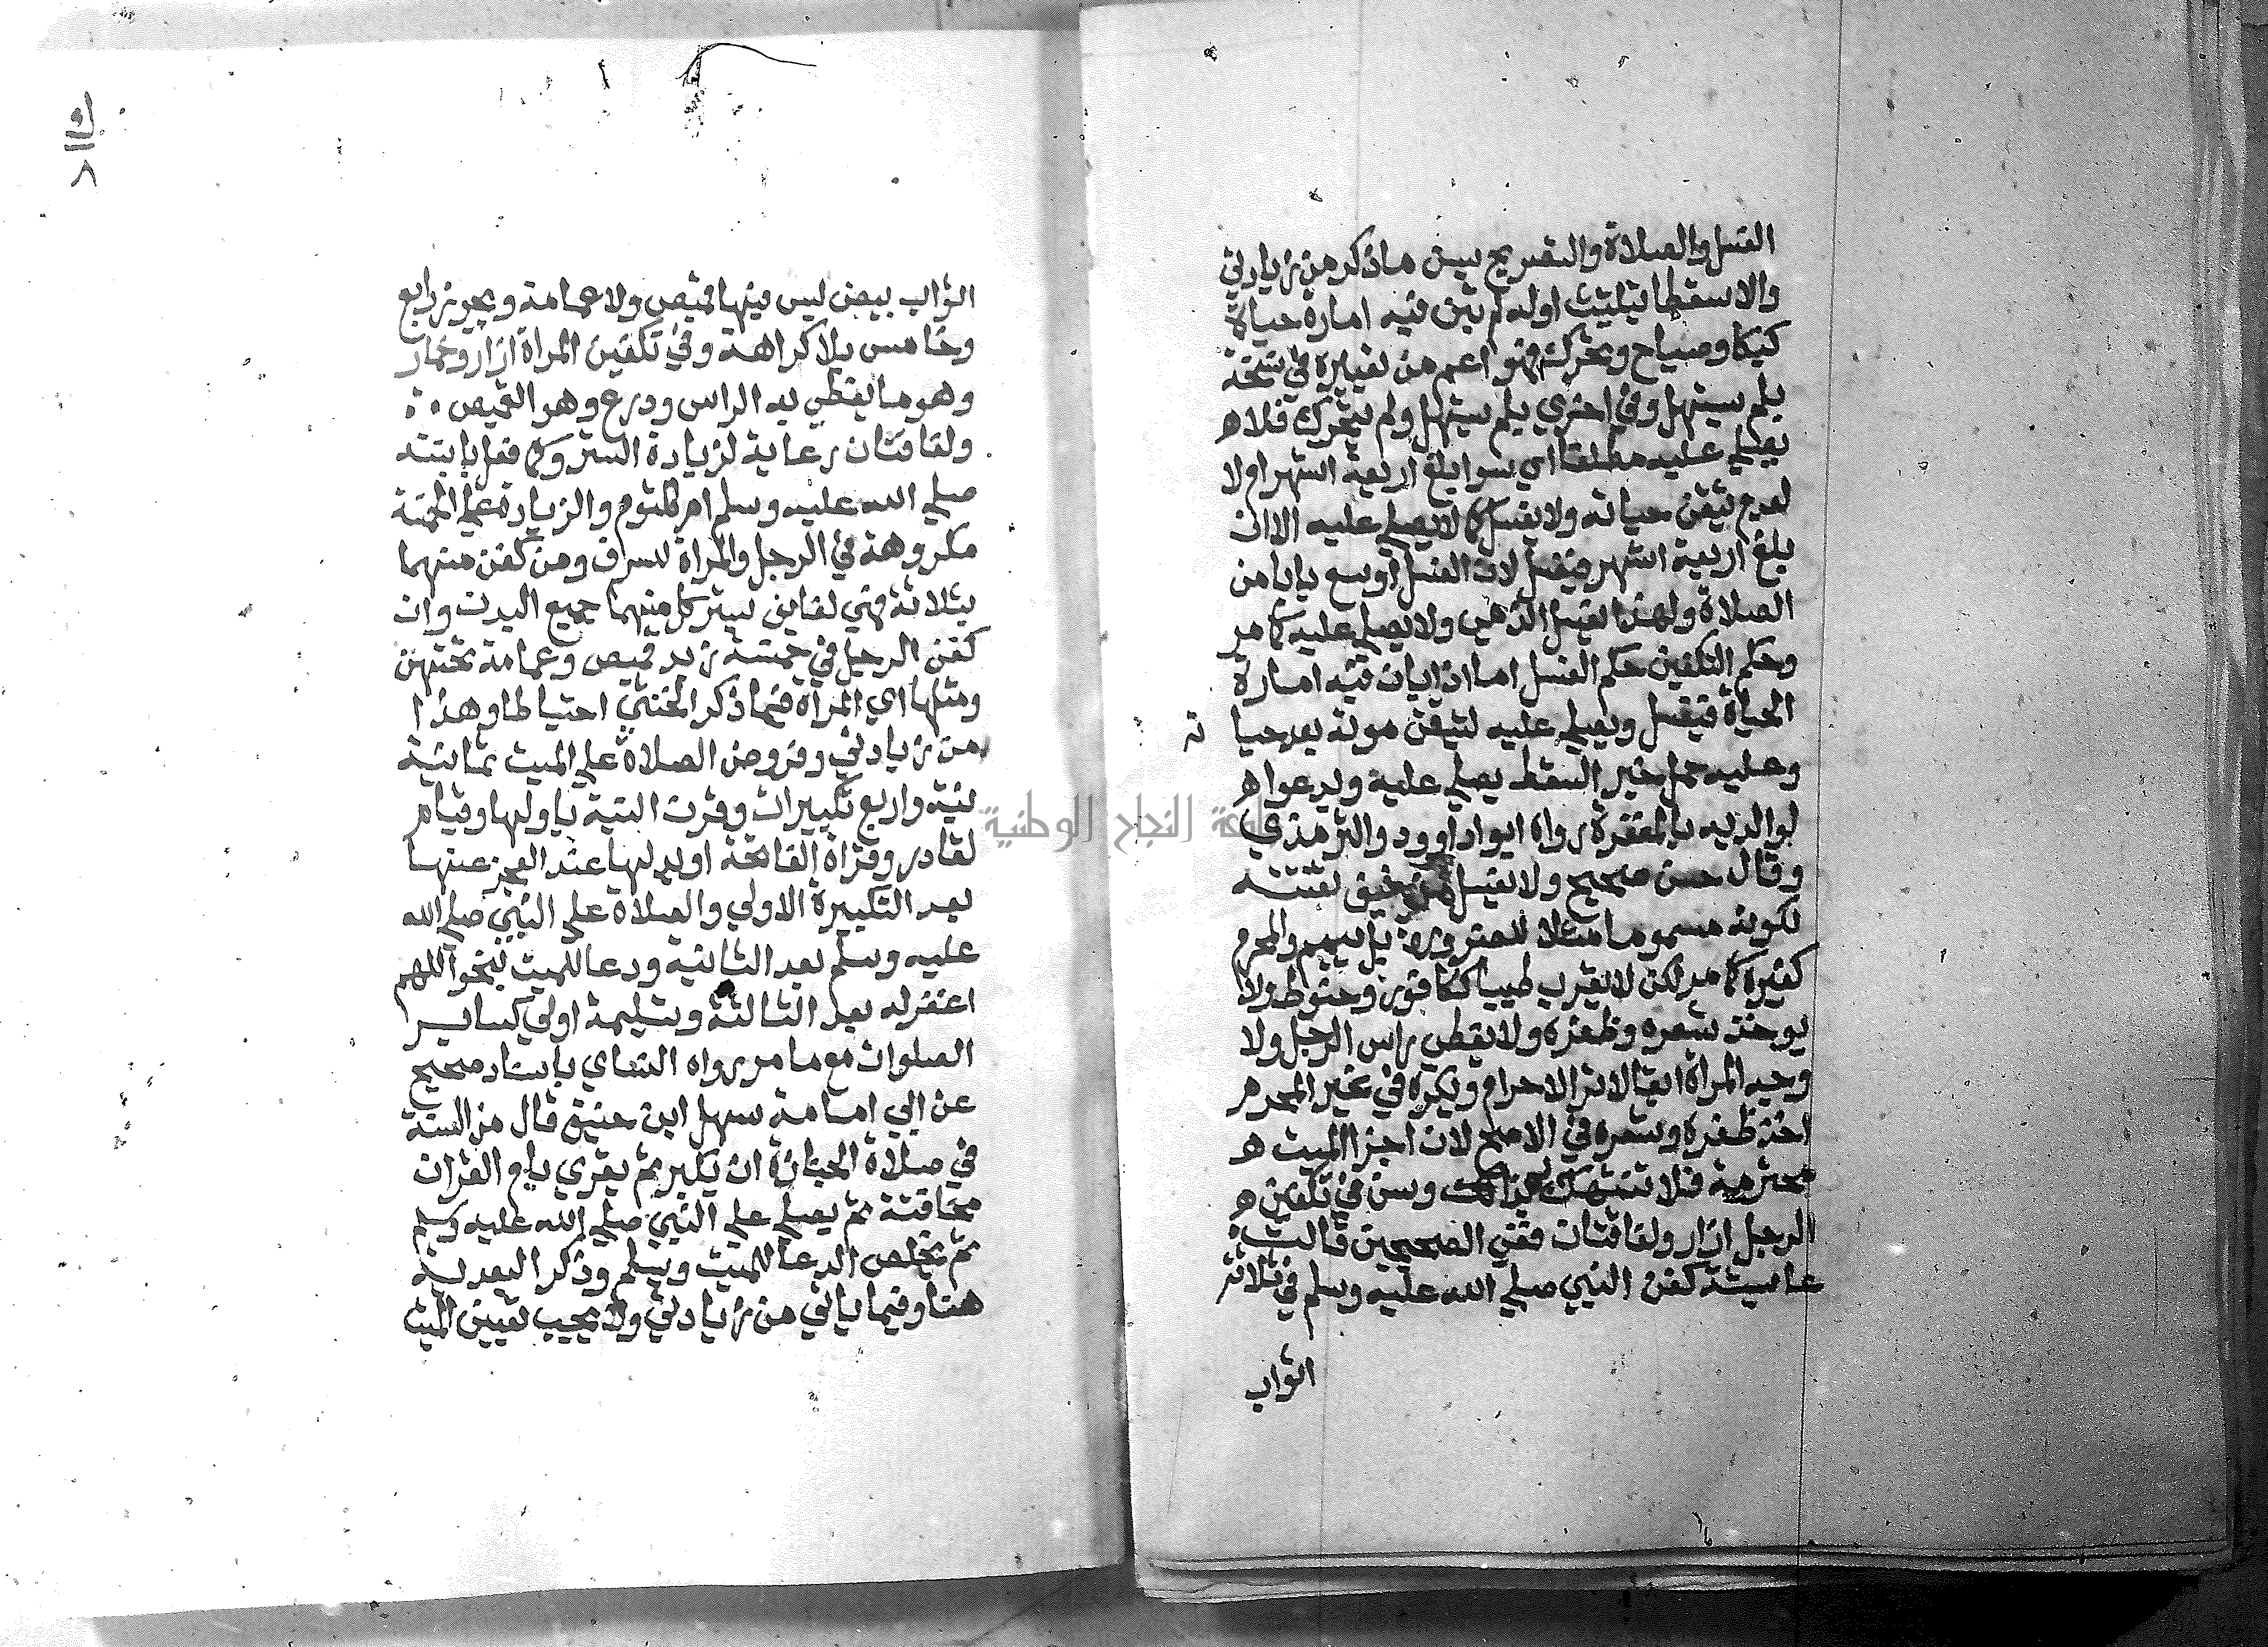 الغسل والصلاة والتصريح بسن ما ذكر من زيادتي
والا سقطا بتثليث اوله لم تبن فيه امارة حياة
كبكا وصياح وتحرك فهو اعم من تعبيره في نسخة
بلم يستهل وفي اخري بلم يستهل ولم يتحرك فلا ه
يصلي عليه مطلقا اي سوا بلغ اربعة اشهر اولا
لعدم تيقن حياته ولا يغسل كما لا يصلي عليه الا ان
بلغ اربعة اشهر فيغسل لان الغسل اوسع بابا من
الصلاة ولهذا يغسل الذمي ولا يصلي عليه كما مر
وحكم التكفين حكم الغسل اما اذا بان فيه امارة
الحياة فيغسل ويصلي عليه لتيقن موته بعد حيا
ته
وعليه حمل خبر السقط يصلي عليه ويدعوا ه
لوالديه بالمغفرة رواه ابو داوود والترمذي
وقال حسن صحيح ولا يغسل من خيف تفتته
لكونه مسموما مثلا للضرورة بل ييمم والمحرم
كغيره كما مر لكن لا يقرب طيبا ككافور وحنوط ولا
يوخذ شعره وظفره ولا يغطي راس الرجل ولا
وجه المراة ابقا لاثر الاحرام ويكره في غير المحرم
اخذ ظفره وشعره في الاصح لان اجزا الميت ه
محترمة فلا تنتهك بذلك وسن في تكفين ه
الرجل ازار ولفافتان ففي الصحيحين قالت
عايشة كفن النبي صلي الله عليه وسلم في ثلاثة
اثواب
و
٨
اثواب بيض ليس فيها قميص ولا عمامة ويجوز رابع
وخامس بلا كراهة وفي تكفين المراة ازار وخمار
وهو ما يغطي به الراس ودرع وهو القميص
ولفافتان رعاية لزيادة الستر وكما فعل بابنته
صلي الله عليه وسلم ام كلثوم والزيادة علي الخمسة
مكروهة في الرجل والمراة للسرف ومن كفن منهما
بثلاثة فهي لفايف يستر كل منهما جميع البدن وان
كفن الرجل في خمسة زيد قميص وعمامة تحتهن
ومثلها اي المراة فيما ذكر الخنثي احتياطا وهذا
من زيادتي وفروض الصلاة علي الميت ثمانية
نية واربع تكبيرات وقرن النية باولها وقيام
لقادر وقراة الفاتحة او بدلها عند العجز عنها
بعد التكبيرة الاولي والصلاة علي النبي صلي الله
عليه وسلم بعد الثانية ودعا للميت بنحو اللهم
اغفر له بعد الثالثة وتسليمة اولي كساير
الصلوات مع ما مر رواه النساي باسناد صحيح
عن ابي امامة سهل ابن حنيف قال من السنة
في صلاة الجنازة ان يكبر ثم يقري بام القران
مخافتة ثم يصلي علي النبي صلي الله عليه وسلم
ثم يخلص الدعا للميت ويسلم وذكر البعدية
هنا وفيما ياتي من زيادتي ولا يجب تعيين الميت
جامعة النجاح الوطنية